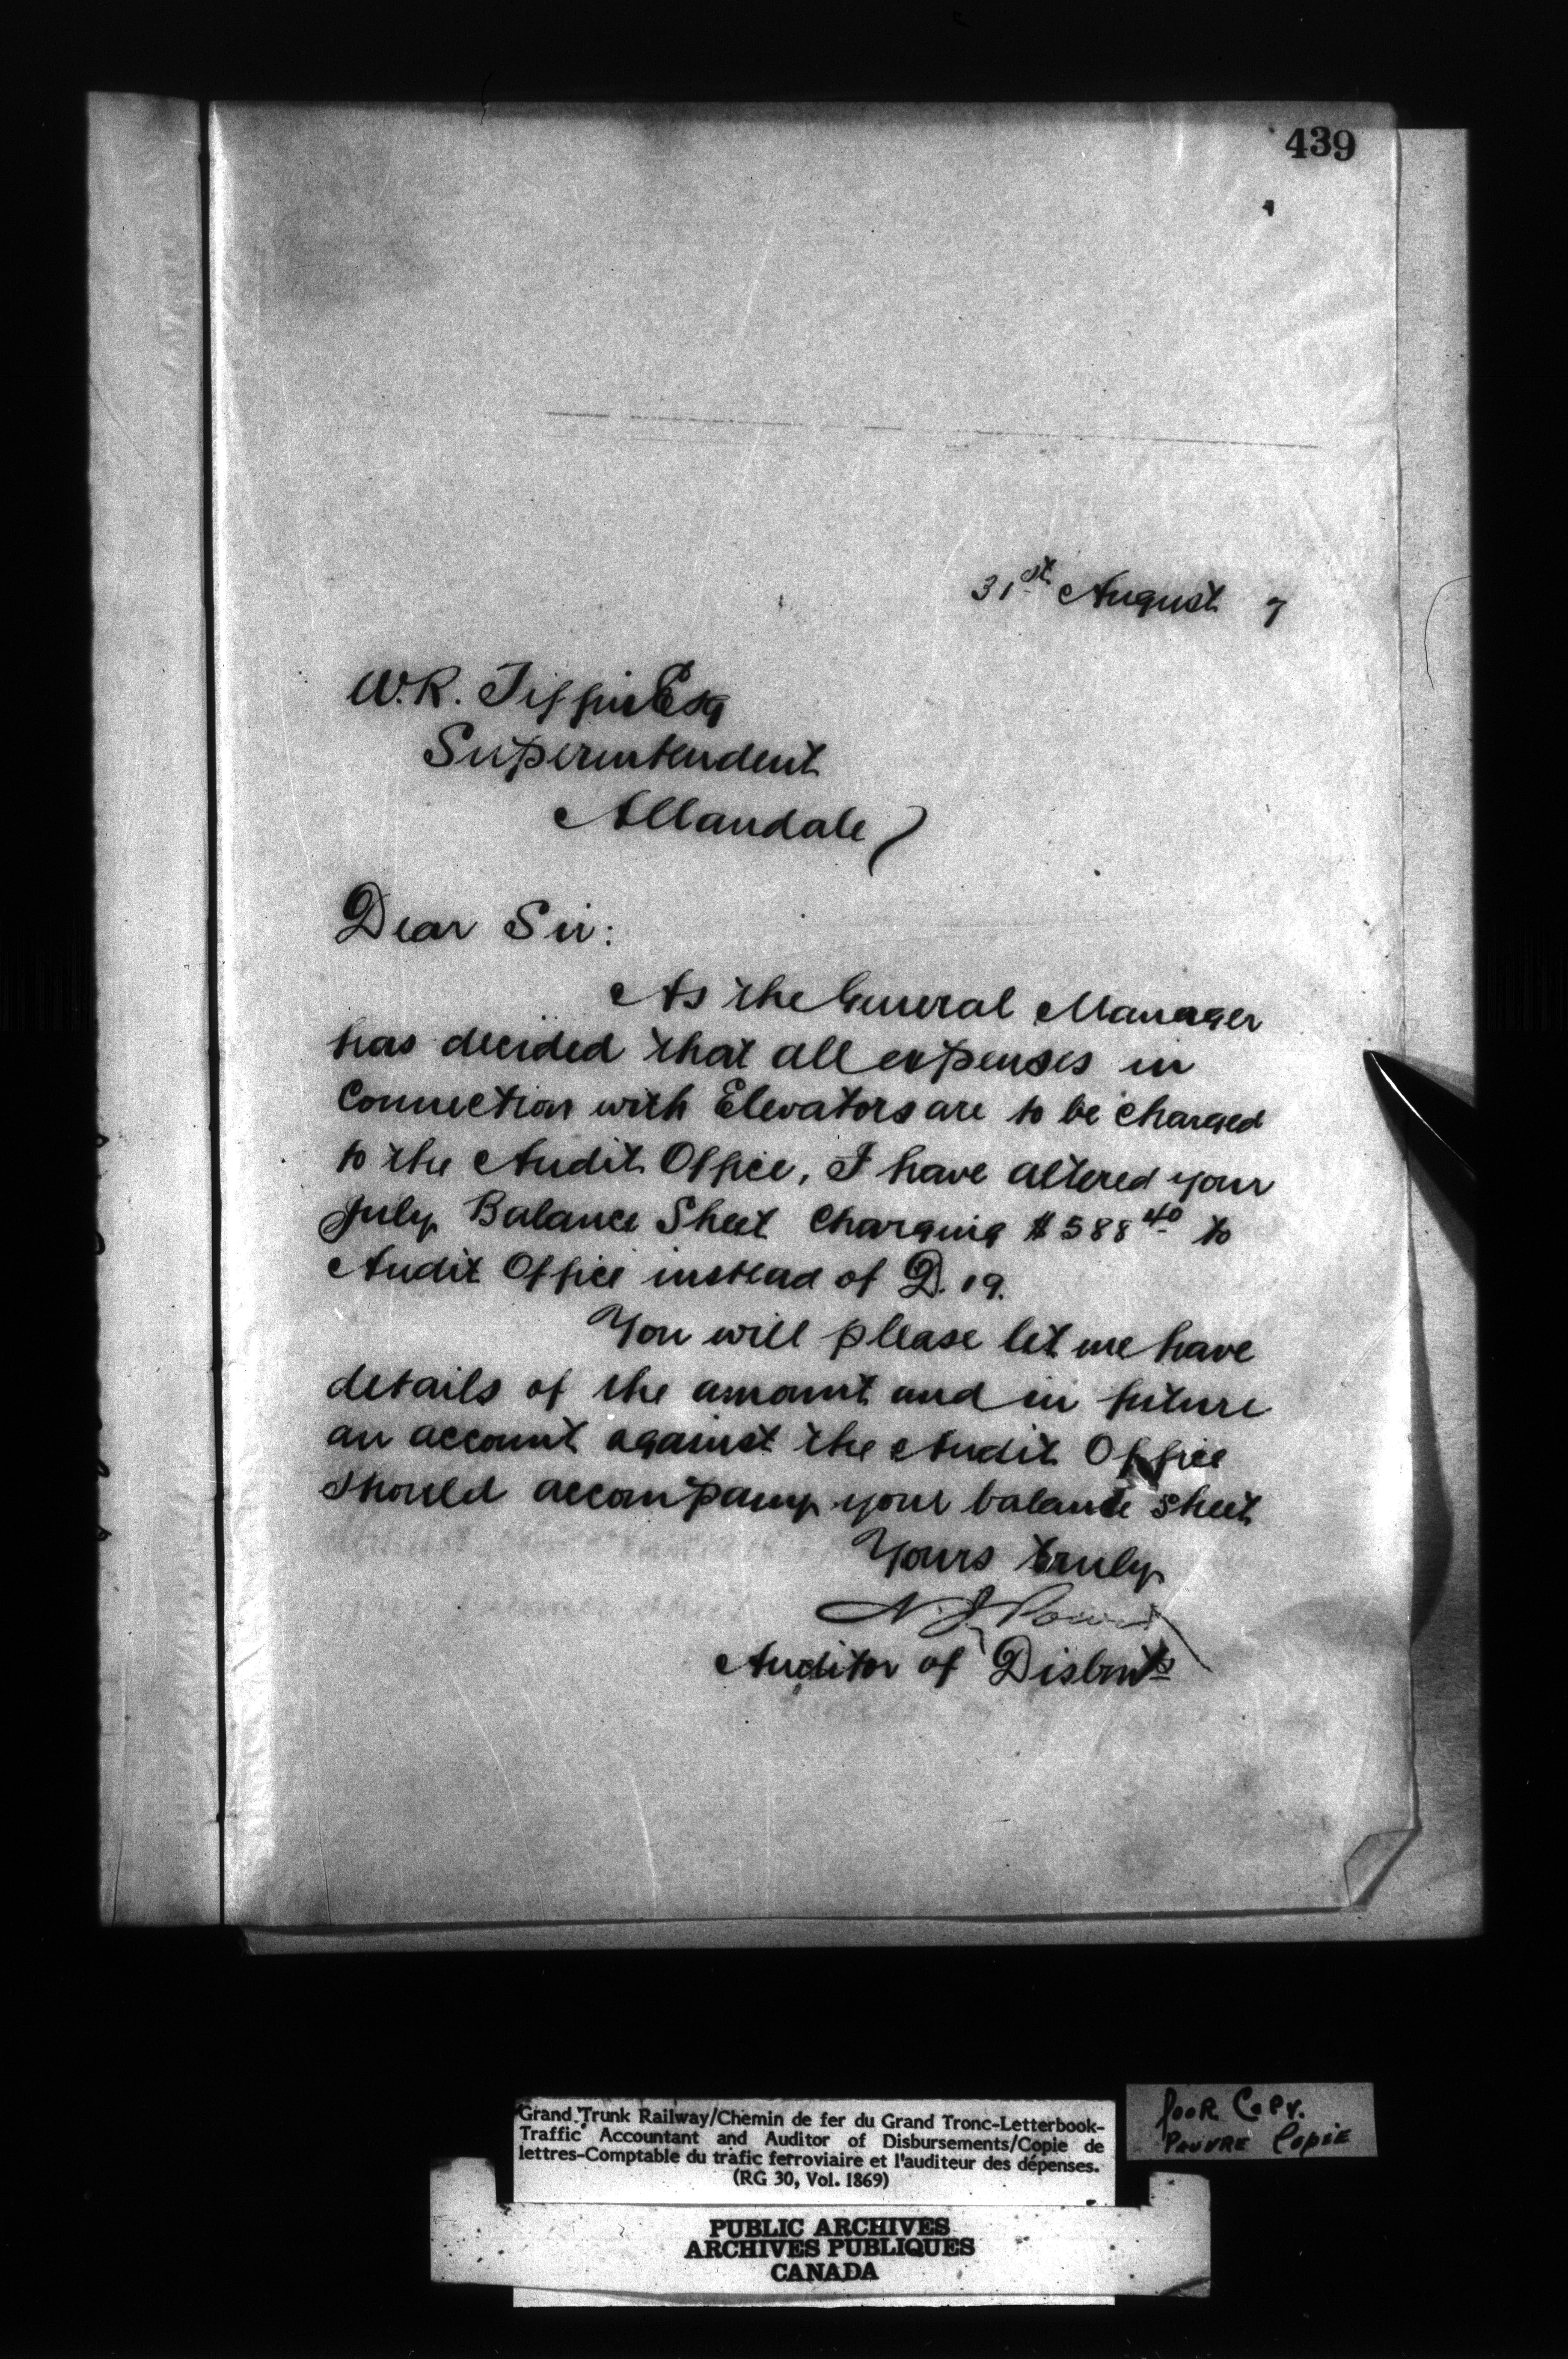 439
31st August 7
W.R. Tiffin Esq
Superintendent
Allandale
Dear Sir:
As the General Manager
has decided that all expenses in
connection with Elevators are to be charged
to the Audit Office, I have altered your
July Balance Sheet charging $588 40 to
Audit Office instead of D. 19.
You will please let me have
details of the amount and in future
an account against the Audit Office
should accompany your balance sheet
Yours truly
N.J. Power
Auditor of Disbmts
Grand Trunk Railway/Chemin de fer du Grand Tronc-Letterbook-
Traffic Accountant and Auditor of Disbursements/Copie de
lettres-Comptable du trafic ferroviaire et l'auditeur des dépenses.
(RG 30, Vol. 1869)
POOR COPY.
PAUVRE COPIE
PUBLIC ARCHIVES
ARCHIVES PUBLIQUES
CANADA